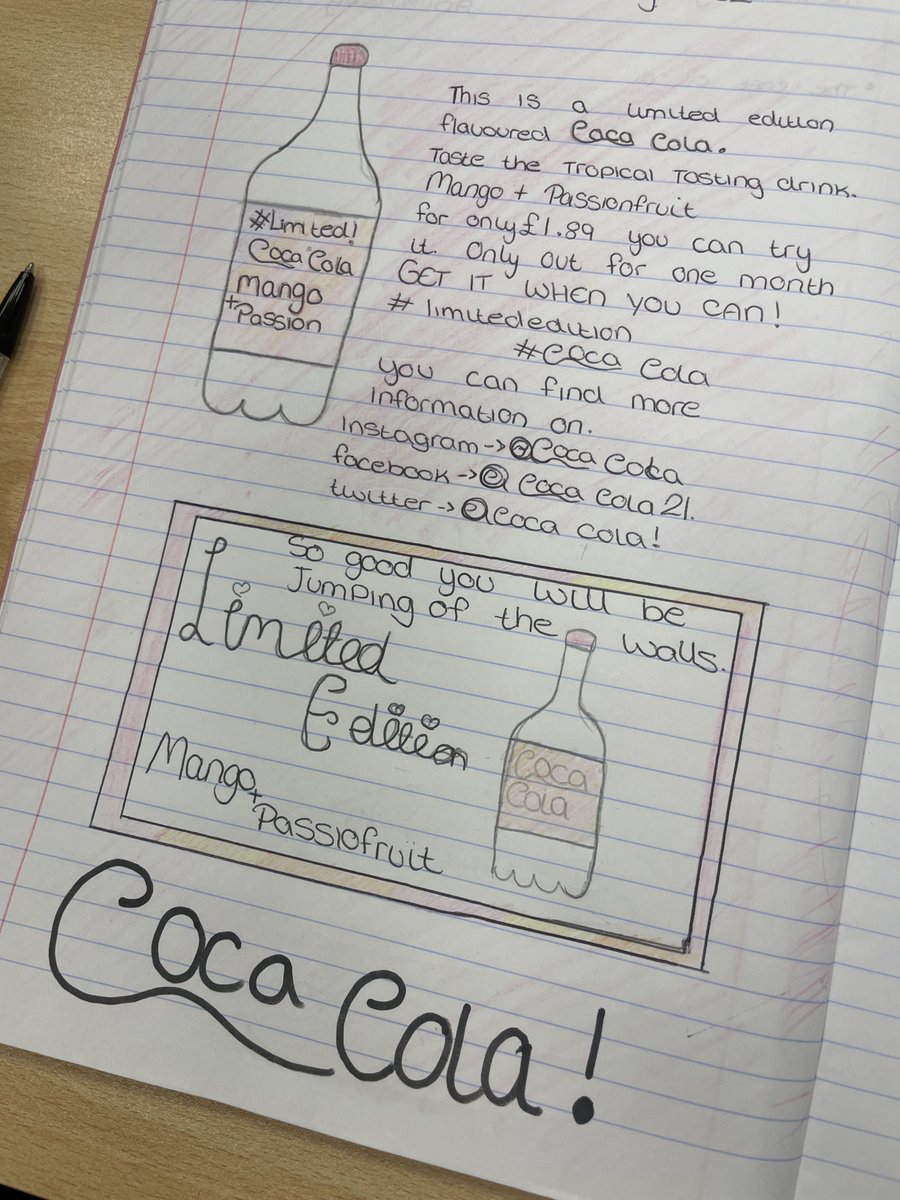 This is a limited edition
flavoured Coca Cola.
Taste the Tropical Tasting drink.
Mango + Passionfruit
for only £1.89 you can try
it. Only out for one month
GET IT WHEN YOU CAN!
# limitededition
#Coca Cola
you can find more
information on.
Instagram -> @Coca Cola
facebook -> @ Coca Cola 21.
twitter -> @Coca Cola!
#Limited!
Coca Cola
Mango
+Passion
So good you will be
Jumping of the walls.
Limited
Edition
Mango
+
Passiofruit
Coca
Cola
Coca Cola!